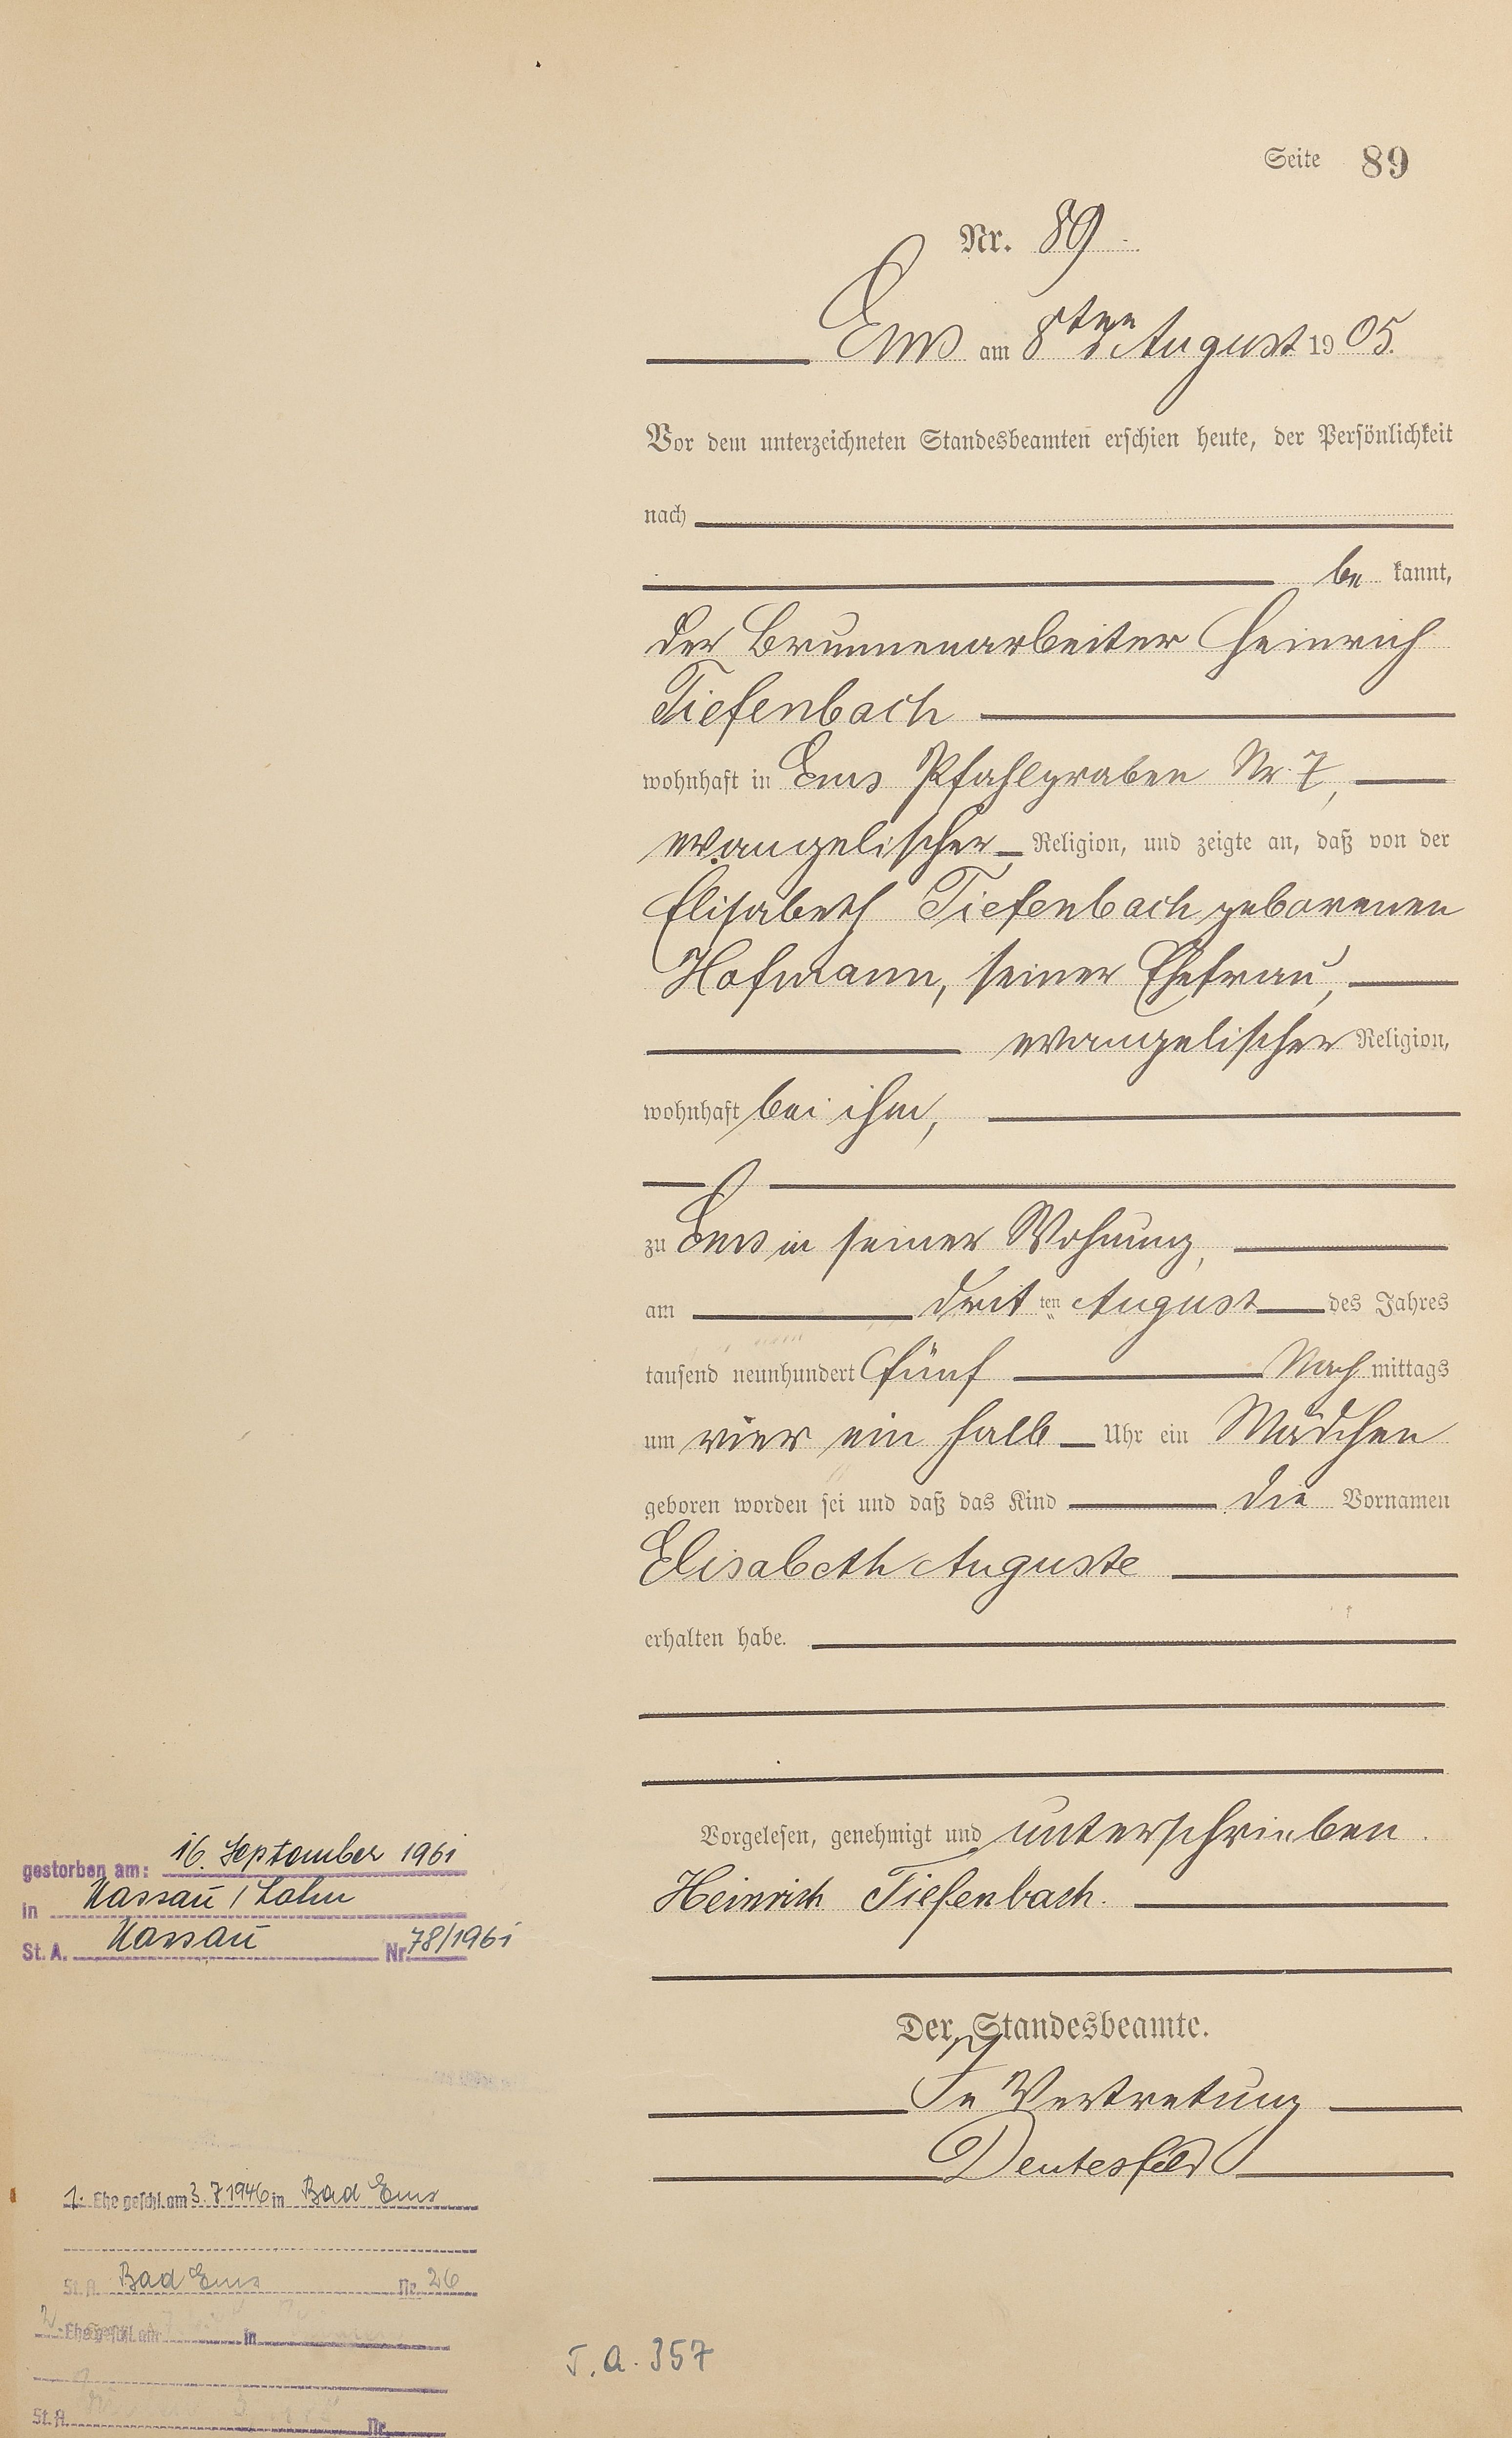 Seite 89
Nr. 89
Ems am 8ten August 1905.
Vor dem unterzeichneten Standesbeamten erschien heute, der Persönlichkeit
nach
be kannt,
der Brunnenarbeiter Heinrich
Tiefenbach
wohnhaft in Ems Pfahlgraben Nr. 7,
evangelischer Religion, und zeigte an, daß von der
Elisabeth Tiefenbach geborenen
Hofmann, seiner Ehefrau,
evangelischer Religion,
wohnhaft bei ihm,
zu Ems in seiner Wohnung,
am dritten August des Jahres
tausend neunhundert fünf Nach mittags
um vier ein halb Uhr ein Mädchen
geboren worden sei und daß das Kind die Vornamen
Elisabeth Auguste
erhalten habe.
Vorgelesen, genehmigt und unterschrieben.
Heinrich Tiefenbach.
Der Standesbeamte.
In Vertretung
Deutesfeld
gestorben am: 16. September 1961
in Nassau / Lahn
St. A. Nassau Nr. 78/1961
1. Ehe geschl. am 3.7.1946 in Bad Ems
St. A. Bad Ems Nr. 26
2. Ehe geschl. am in
St. A. Nr.
T. A. 357